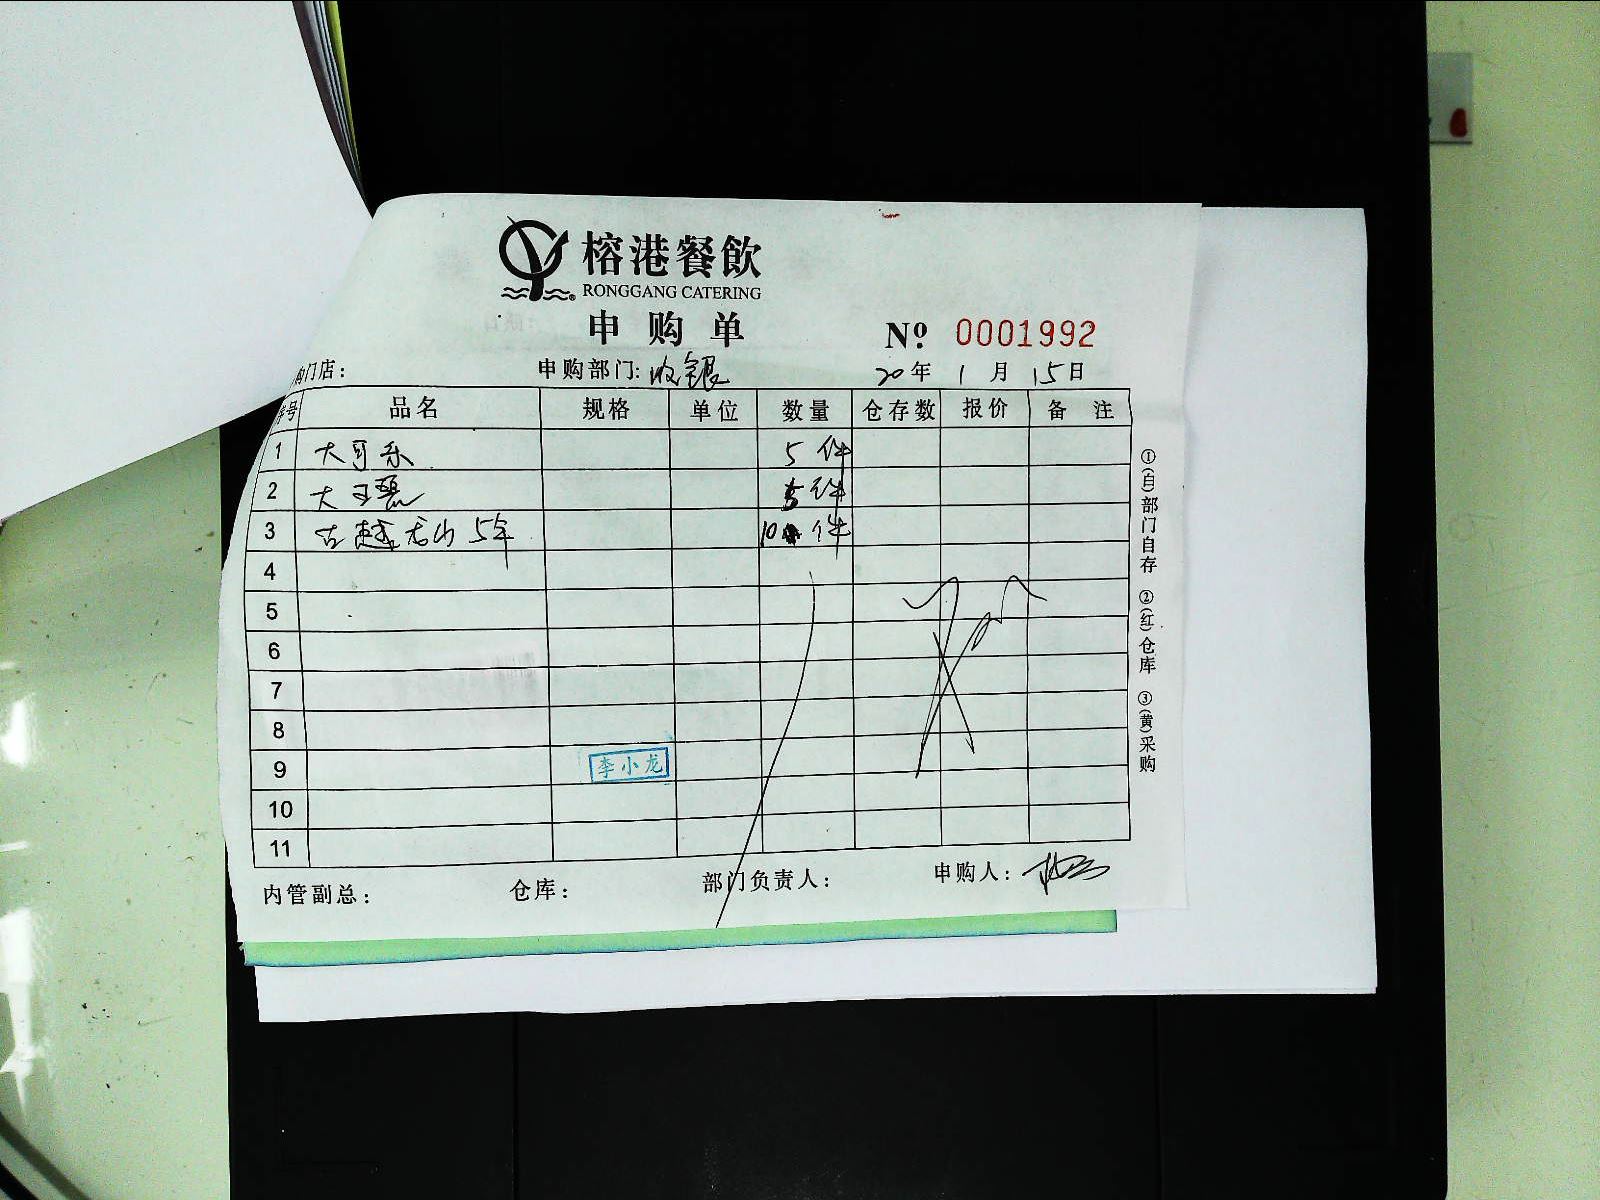 榕港餐飲
RONGGANG CATERING
申购单
Nº 0001992
购门店: 申购部门: 收银 20年 1月 15日
序号 品名 规格 单位 数量 仓存数 报价 备注
1 大可乐 5件
2 大王老 5件
3 古越龙山 5年 10件
4
5
6
7
8
9 李小龙
10
11
内管副总: 仓库: 部门负责人: 申购人:
①(白)部门自存 ②(红)仓库 ③(黄)采购